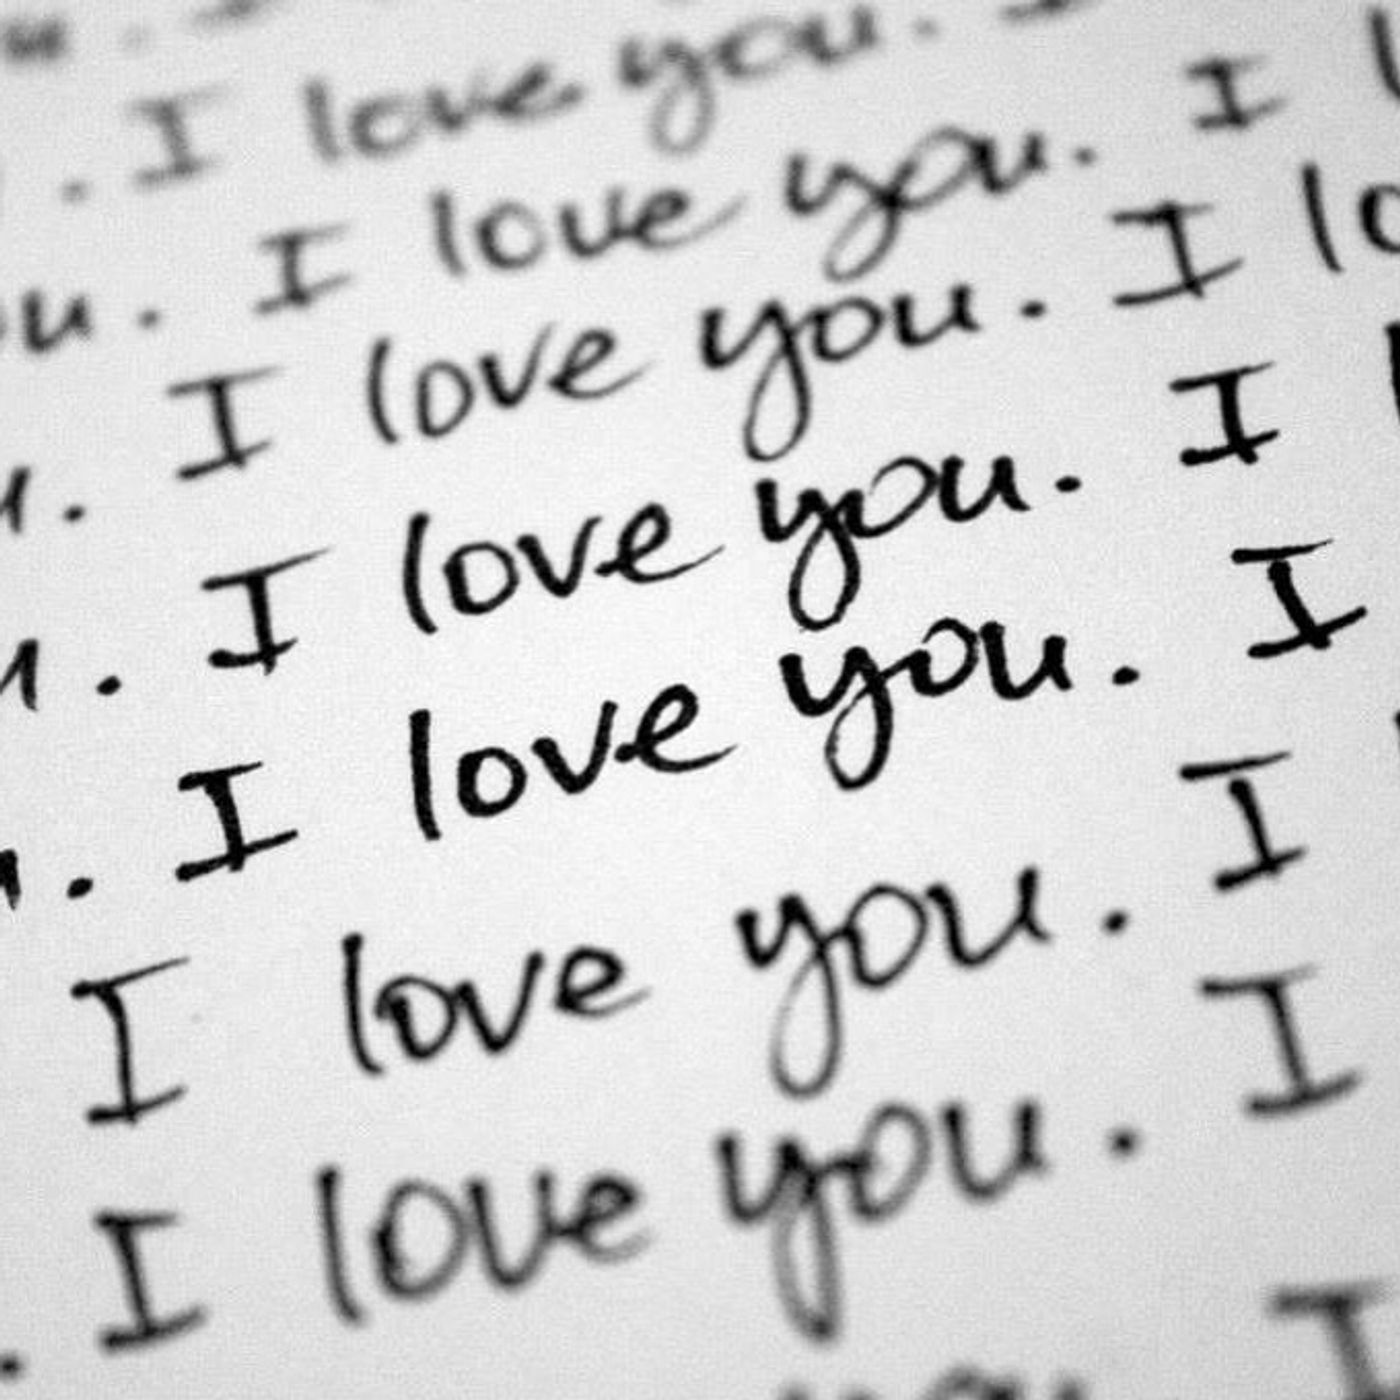 I love you.
. I love you. I
ou. I love you. I lo
u. I love you. I
u. I love you. I
u. I love you. I
I love you. I
. I love you. I
you I